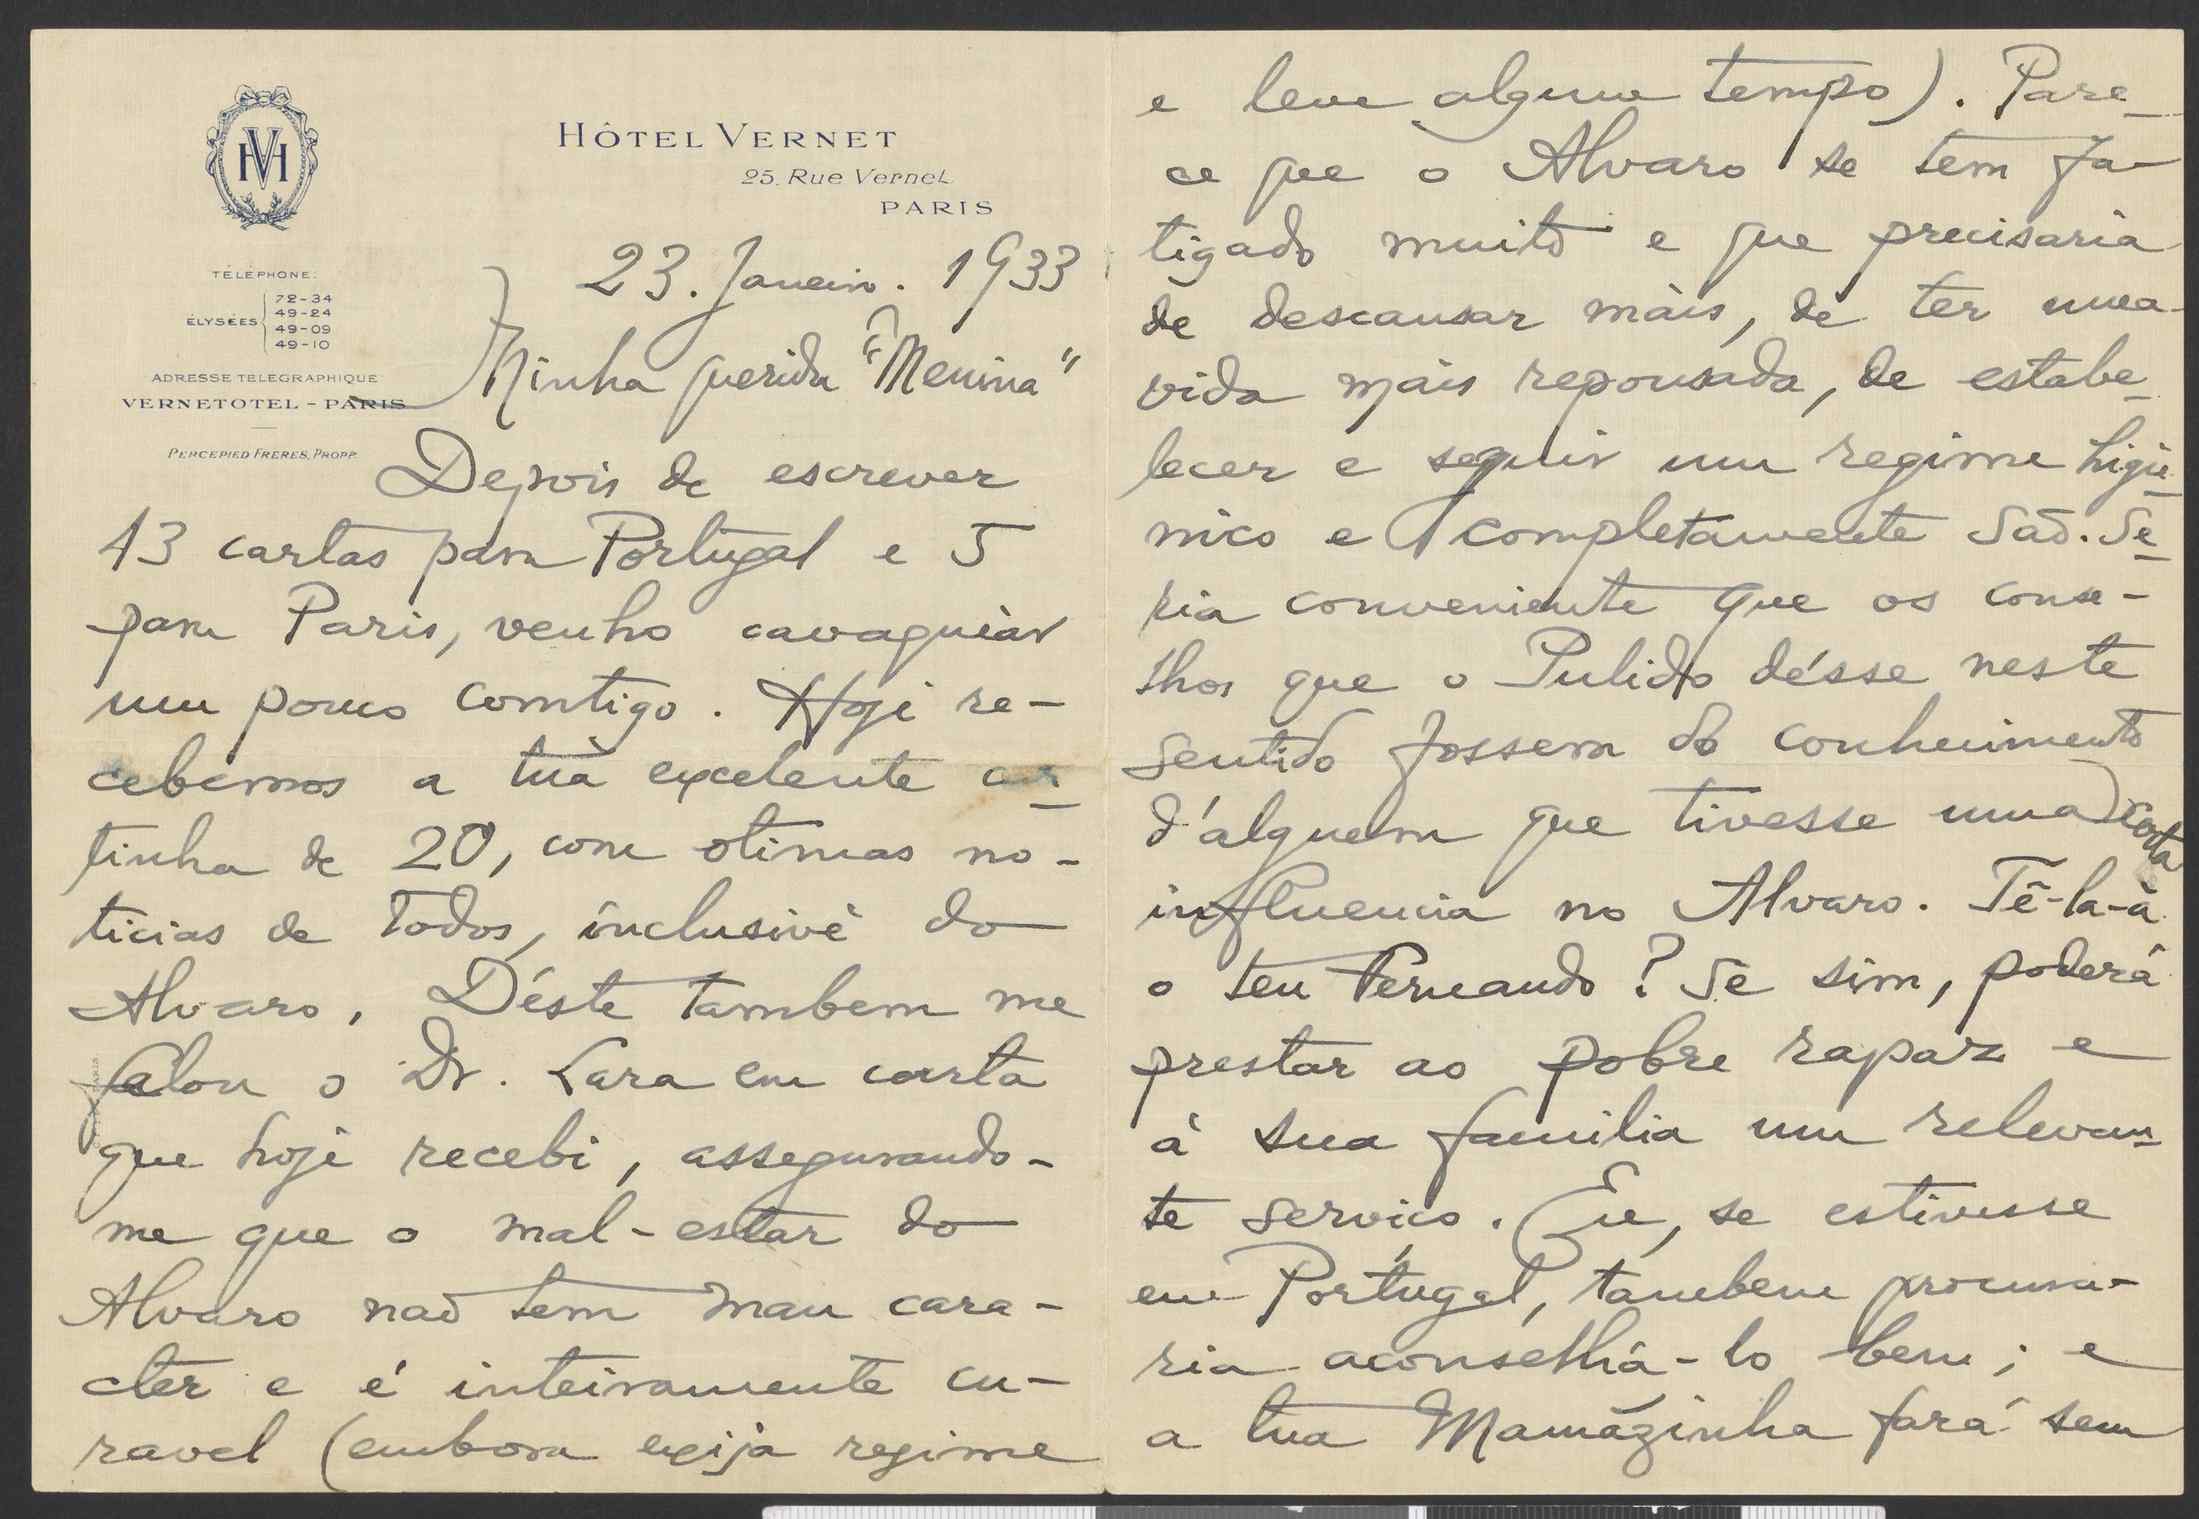 HÔTEL VERNET
25. Rue Vernet
PARIS
TÉLÉPHONE:
ÉLYSÉES
72-34
49-24
49-09
49-10
ADRESSE TÉLÉGRAPHIQUE
VERNETOTEL - PARIS
PERCEPIED FRERES, PROPP.
23. Janeiro. 1933
Minha querida "Menina"
Depois de escrever
13 cartas para Portugal e 5
para Paris, venho cavaquear
um pouco comtigo. Hoje re-
cebemos a tua excelente car-
tinha de 20, com otimas no-
ticias de todos, inclusivé do
Alvaro. Déste tambem me
falou o Dr. Lara em carta
que hoje recebi, assegurando-
me que o mal-estar do
Alvaro não tem mau cara-
cter e é inteiramente cu-
ravel (embora exija regime
e leve algum tempo). Pare-
ce que o Alvaro se tem fa-
tigado muito e que precisaria
de descansar mais, de ter uma
vida mais repousada, de estabe-
lecer e seguir um regime higie-
nico e completamente são. Se-
ria conveniente que os conse-
lhos que o Pulido désse neste
sentido fossem do conhecimento
d'alguem que tivesse uma certa
influencia no Alvaro. Tê-la-á
o teu Fernando? Se sim, poderá
prestar ao pobre rapaz e
á sua familia um relevan-
te serviço. Eu, se estivesse
em Portugal, tambem procura-
ria aconselhá-lo bem; e
a tua Mamãzinha fará sem